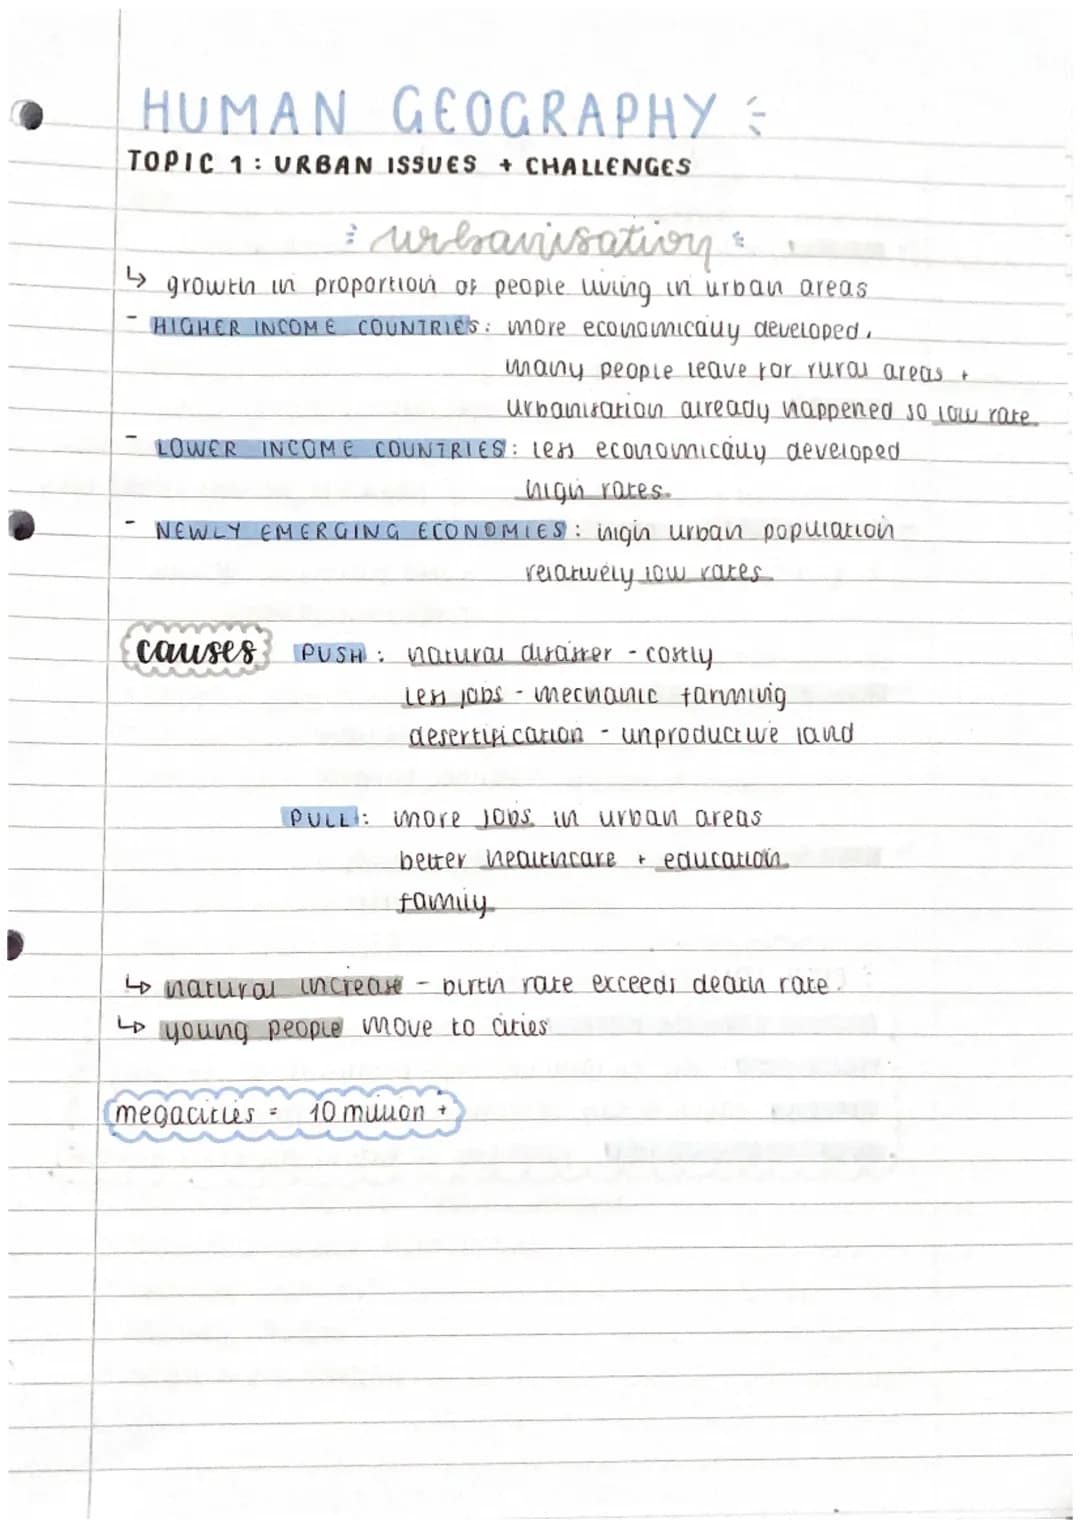 HUMAN GEOGRAPHY
TOPIC 1: URBAN ISSUES + CHALLENGES
urbanisation
↳ growth in proportion of people living in urban areas
- HIGHER INCOME COUNTRIES: more economically developed.
many people leave for rural areas +
urbanisation already happened so low rate
- LOWER INCOME COUNTRIES: less economically developed
high rates.
- NEWLY EMERGING ECONOMIES: high urban population
relatively low rates
causes PUSH: natural disaster - costly
less jobs - mechanic farming
desertification - unproductive land
PULL: more jobs in urban areas
better healthcare + education
family
↳ natural increase - birth rate exceeds death rate.
↳ young people move to cities
megacities = 10 million +